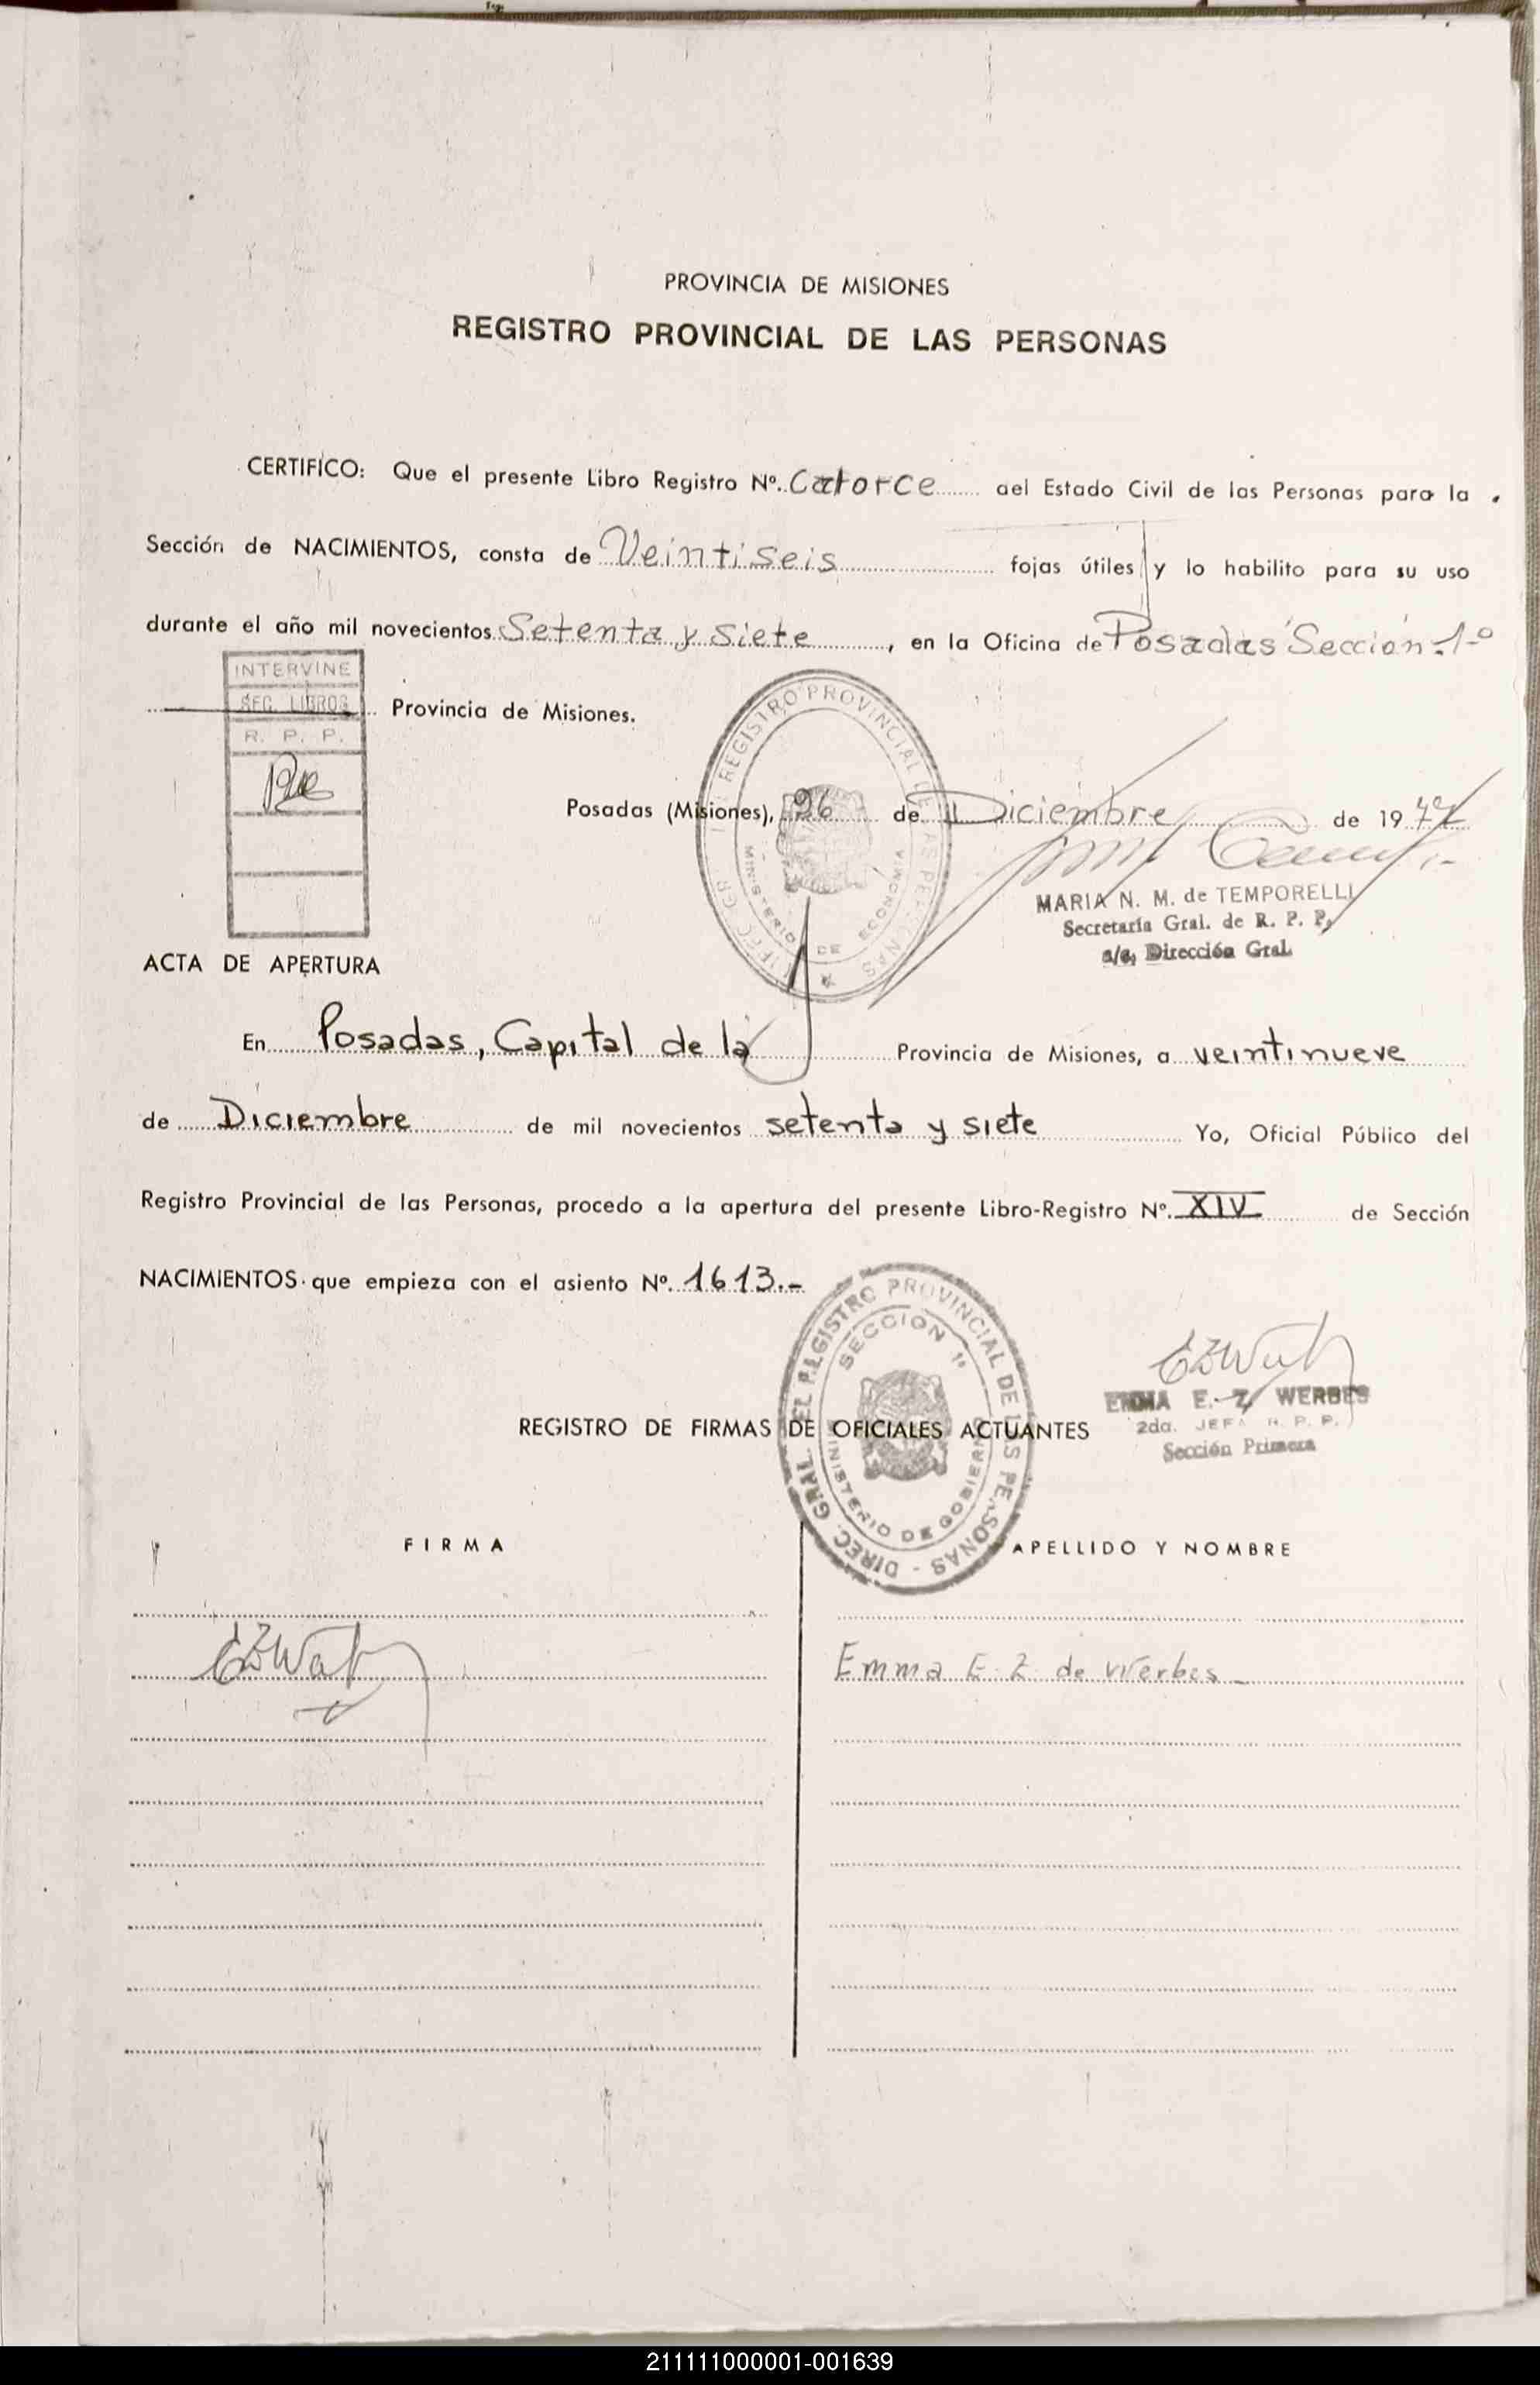 PROVINCIA DE MISIONES
REGISTRO PROVINCIAL DE LAS PERSONAS
CERTIFICO: Que el presente Libro Registro Nº. Catorce del Estado Civil de las Personas para la
Sección de NACIMIENTOS, consta de Veintiseis fojas útiles y lo habilito para su uso
durante el año mil novecientos Setenta y Siete, en la Oficina de Posadas Sección 1º
Provincia de Misiones.
INTERVINE
SEC. LIBROS
R. P. P.
REGISTRO PROVINCIAL DE LAS PERSONAS
MINISTERIO DE ECONOMIA
Posadas (Misiones), 26 de Diciembre de 1977
MARIA N. M. de TEMPORELLI
Secretaría Gral. de R. P. P.
a/c. Dirección Gral.
ACTA DE APERTURA
En Posadas, Capital de la Provincia de Misiones, a veintinueve
de Diciembre de mil novecientos setenta y siete Yo, Oficial Público del
Registro Provincial de las Personas, procedo a la apertura del presente Libro-Registro Nº. XIV de Sección
NACIMIENTOS que empieza con el asiento Nº. 1613.-
DIREC. GRAL. DEL REGISTRO PROVINCIAL DE LAS PERSONAS -
SECCION 1ª
MINISTERIO DE GOBIERNO
EMMA E. Z. WERBES
2da. JEFA R. P. P.
Sección Primera
REGISTRO DE FIRMAS DE OFICIALES ACTUANTES
FIRMA APELLIDO Y NOMBRE
Emma E. Z. de Werbes
211111000001-001639